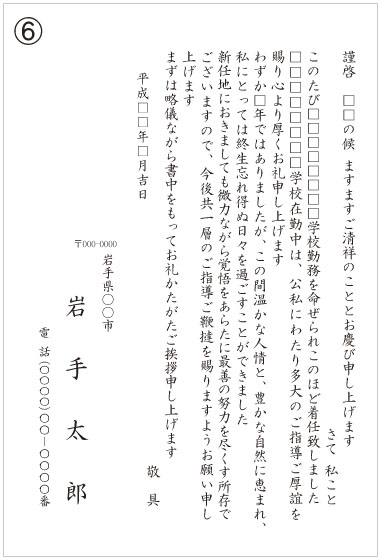 ⑥
謹啓　□□の候　ますますご清祥のこととお慶び申し上げます
さて　私こと
このたび□□□□□□□学校勤務を命ぜられこのほど着任致しました
□□□□□□□学校在勤中は、公私にわたり多大のご指導ご厚誼を
賜り心より厚くお礼申し上げます
わずか□年ではありましたが、この間温かな人情と、豊かな自然に恵まれ、
私にとっては終生忘れ得ぬ日々を過ごすことができました
新任地におきましても微力ながら覚悟をあらたに最善の努力を尽くす所存で
ございますので、今後共一層のご指導ご鞭撻を賜りますようお願い申し
上げます
まずは略儀ながら書中をもってお礼かたがたご挨拶申し上げます
敬具
平成□□年□月吉日
〒000-0000
岩手県〇〇市
岩手太郎
電話(〇〇〇〇)〇〇ー〇〇〇〇番